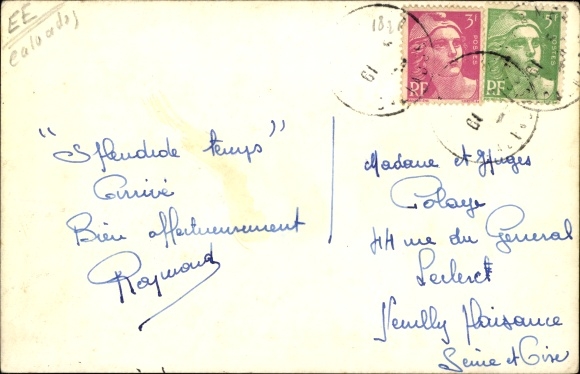 EE
Calvados
18
3F
POSTES
RF
5F
POSTES
RF
19
19
"Splendide temps"
Arrivé
Bien affectueusement
Raymond
Madame et
Colaye
44 rue du General
Leclerc
Neuilly Plaisance
Seine et Oise